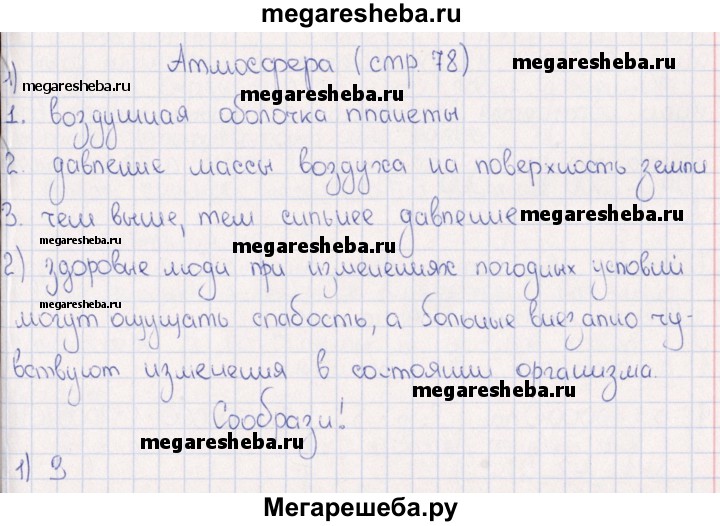 megaresheba.ru
Атмосфера (стр. 78) megaresheba.ru
1)
megaresheba.ru
megaresheba.ru
1. воздушная оболочка планеты
2. давление массы воздуха на поверхность земли
3. чем выше, тем сильнее давление megaresheba.ru
megaresheba.ru
megaresheba.ru
2) здоровые люди при изменениях погодных условий
megaresheba.ru
могут ощущать слабость, а больные внезапно чу-
вствуют изменения в состоянии организма.
megaresheba.ru
Сообрази!
megaresheba.ru
1) 9
Мегарешеба.ру